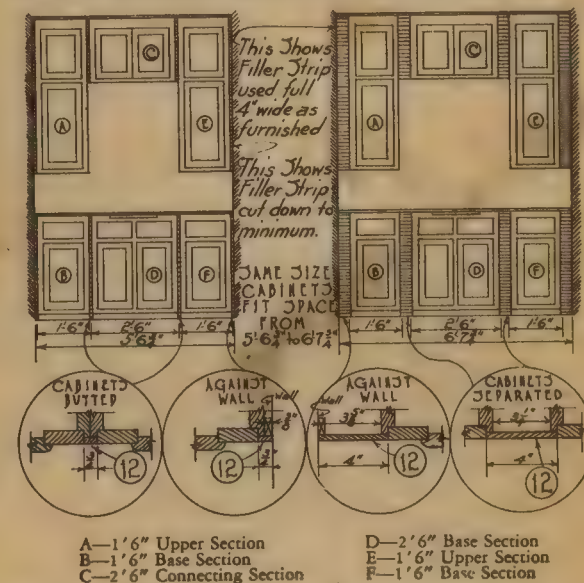 This Shows
Filler Strip
used full
4" wide as
furnished
This Shows
Filler Strip
cut down to
minimum.
SAME SIZE
CABINETS
FIT SPACE
FROM
5'6¾" to 6'7¾"
A
C
E
B
D
F
1'6" 2'6" 1'6"
5'6¾"
A
C
E
B
D
F
1'6" 2'6" 1'6"
6'7¾"
CABINETS
BUTTED
12
AGAINST
WALL
Wall
12
AGAINST
WALL
Wall
3⅝"
4"
12
CABINETS
SEPARATED
4"
12
A—1'6" Upper Section
B—1'6" Base Section
C—2'6" Connecting Section
D—2'6" Base Section
E—1'6" Upper Section
F—1'6" Base Section